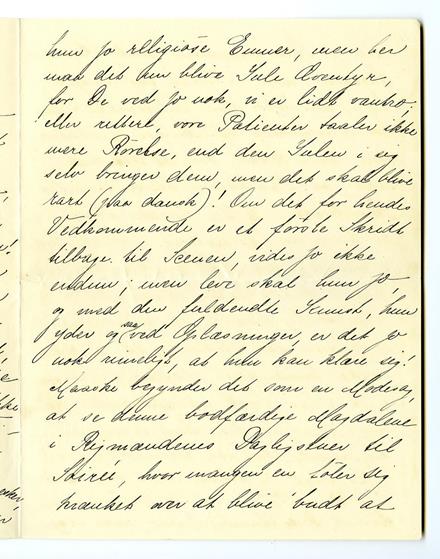 hun jo religiöse Emner, men her
maa det kun blive Jule Æventyr,
for De ved jo nok, vi er lidt vantro
eller rettere, vore Patienter taaler ikke
mere Rørelse, end den Julen i sig
selv bringer dem, men det skal blive
rart (paa dansk)! Om det for hendes
Vedkommende er et første Skridt
tilbage til Scenen, vides jo ikke
endnu; men leve skal hun jo,
og med den fuldendte Kunst, hun
yder og saa ved Oplæsninger, er det jo
nok rimeligt, at hun kan klare sig!
Maaske begynder det som en Modesag,
at se denne bodfærdige Magdalene
i Rigmændenes Dagligstuer til
Soirée, hvor mangen en føler sig
krænket over at blive budt at